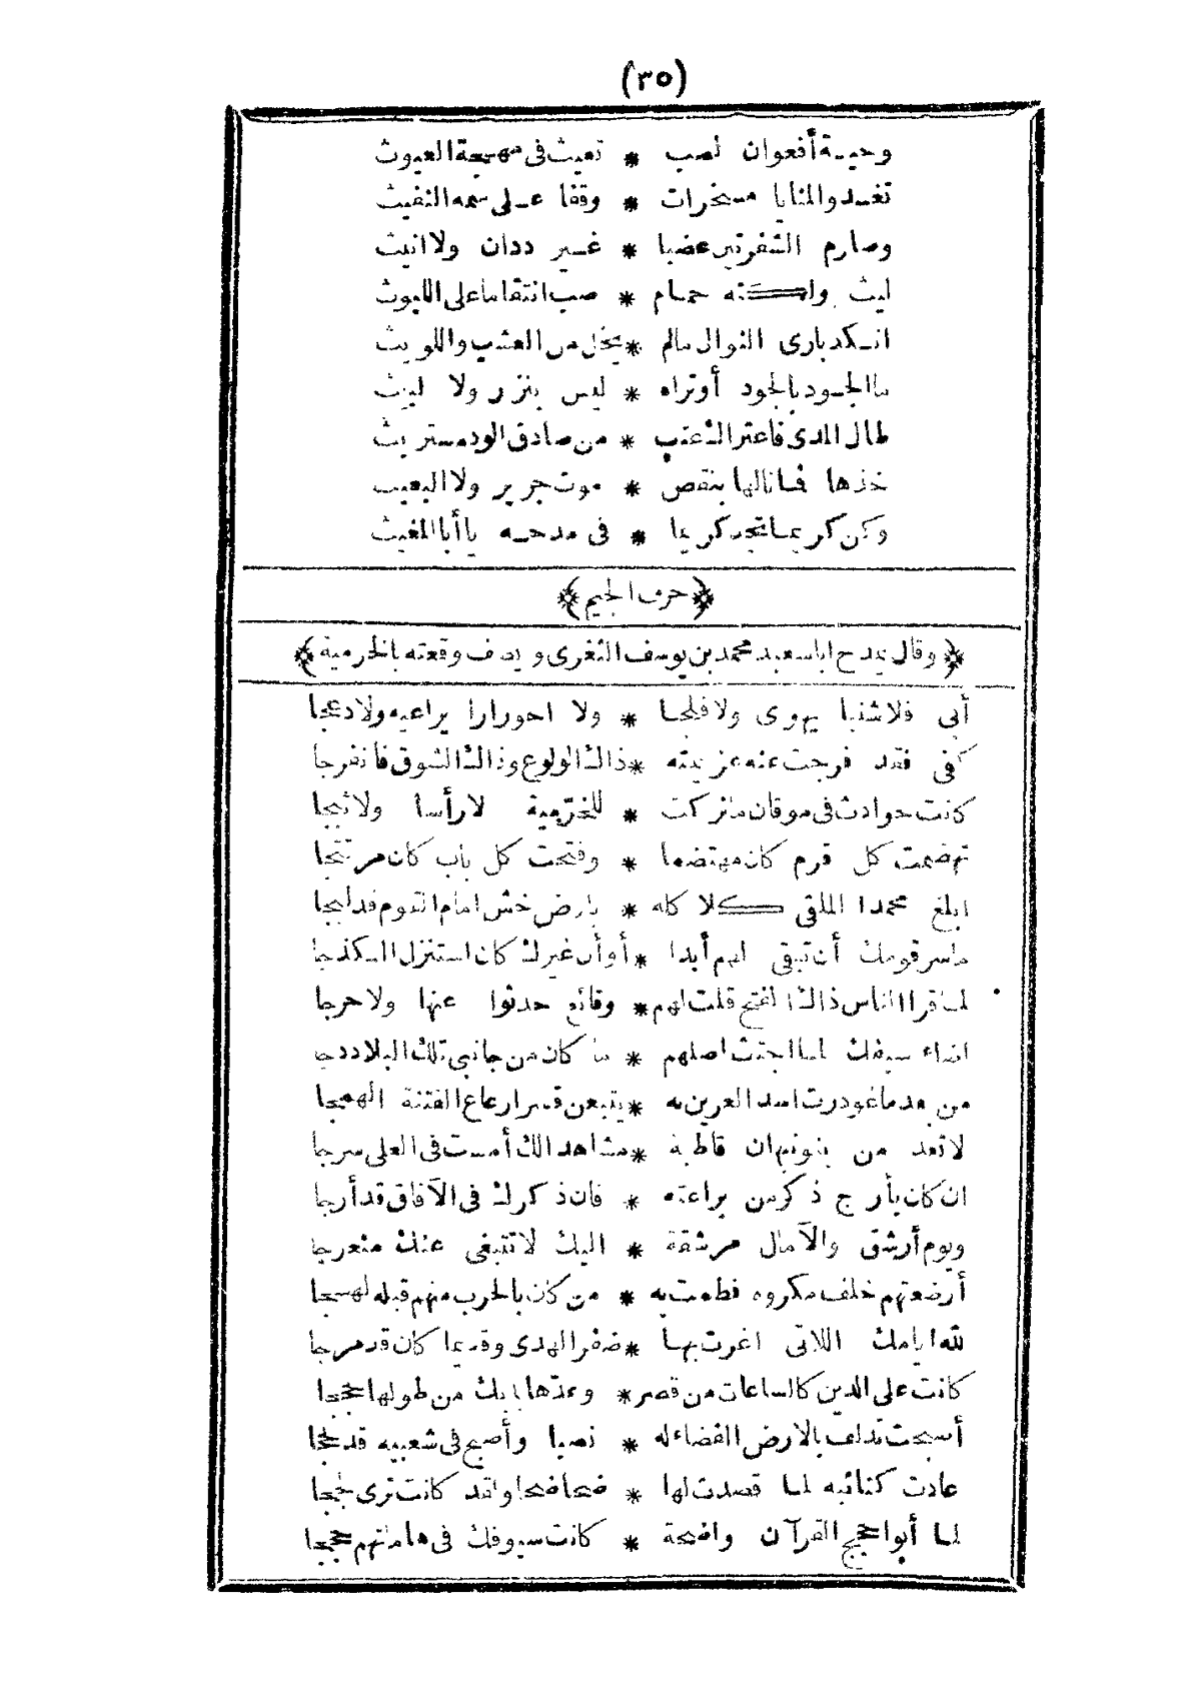 (٣٥)
وحيـة أفعوان لصب * تعيث في مهجة العيوث
تغـدو المنايا مسخرات * وقفا عـلى سمه النفيث
وصارم الشفرتين عضبا * غـير ددان ولا انيث
ليث ولكنه حمام * صب انتقاما على الليوث
انـكد بارى النوال مالم * يخل من العشب واللويث
ما الجـود بالجود أوتراه * ليس بنزر ولا لبيث
طال المدى فاعتراك عتب * من صادق الود مستريث
خذها فما نالها بنقص * موت جرير ولا البعيث
وكن كريما تجد كريما * في مدحـه يا أبا المغيث
﴿حرف الجيم﴾
﴿وقال يمدح ابا سعيد محمد بن يوسف الثغرى ويصف وقعته بالخرمية﴾
أبى فلا شنبا يهوى ولا فلجا * ولا احورارا يراعيه ولا دعجا
كفى فقد فرجت عنه عزيمته * ذاك الولوع وذاك الشوق فانفرجا
كانت حوادث في موقان ما تركت * للخرّمية لا رأسا ولا ثبجا
تهضمت كل قرم كان مهتضما * وفتحت كل باب كان مرتتجا
ابلغ محمدا الملقى كلا كله * بارض خش امام القوم قد لبجا
ما سر قومك أن تبقى لهم أبدا * أو أن غيرك كان استنزل الكذجا
لما قرا الناس ذاك الفتح قلت لهم * وقائع حدثوا عنها ولا حرجا
اضاء سيفك لما اجتث اصلهم * ما كان من جانبي تلك البلاد دجا
من بعد ما غودرت اسد العرين به * يتبعن قسرا رعاع الفتنة الهمجا
لا تعد من بنو نبهان قاطبة * مشاهدا لك أمست في العلى سرجا
ان كان يأرج ذكر من براعته * فان ذكرك في الآفاق قد أرجا
ويوم أرشق والآمال مرشقة * اليك لا تتبغى عنك منعرجا
أرضعتهم خلف مكروه فطمت به * من كان بالحرب منهم قبله لهجا
لله ايامك اللاتي اغرت بها * ضفر الهدى وقديما كان قد مرجا
كانت على الدين كالساعات من قصر * وعدّها بابك من طولها حججا
أصبحت تدلف بالارض الفضاء له * نصبا وأصبح في شعبيه قد لحجا
عادت كتائبه لما قصدت لها * ضحاضحا ولقد كانت ترى لججا
لما أبوا حجج القرآن واضحة * كانت سيوفك في هاماتهم حججا